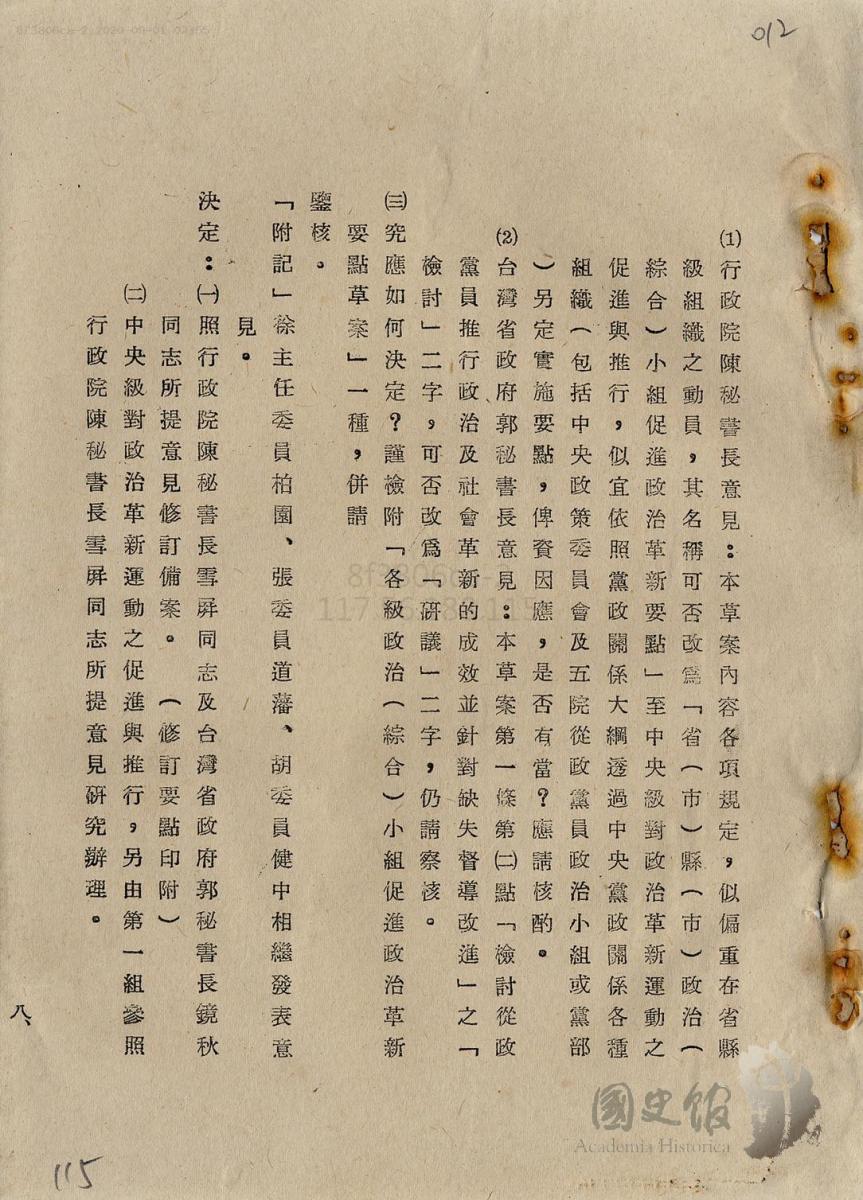 012
⑴行政院陳秘書長意見：本草案內容各項規定，似偏重在省縣
級組織之動員，其名稱可否改爲「省（市）縣（市）政治（
綜合）小組促進政治革新要點」至中央級對政治革新運動之
促進與推行，似宜依照黨政關係大綱透過中央黨政關係各種
組織（包括中央政策委員會及五院從政黨員政治小組或黨部
）另定實施要點，俾資因應，是否有當？應請核酌。
⑵台灣省政府郭秘書長意見：本草案第一條第㈡點「檢討從政
黨員推行政治及社會革新的成效並針對缺失督導改進」之「
檢討」二字，可否改爲「研議」二字，仍請察核。
㈢究應如何決定？謹檢附「各級政治（綜合）小組促進政治革新
要點草案」一種，併請
鑒核。
「附記」徐主任委員柏園、張委員道藩、胡委員健中相繼發表意
見。
決定：㈠照行政院陳秘書長雪屛同志及台灣省政府郭秘書長鏡秋
同志所提意見修訂備案。（修訂要點印附）
㈡中央級對政治革新運動之促進與推行，另由第一組參照
行政院陳秘書長雪屛同志所提意見研究辦理。
八、
115
國史館
Academia Historica